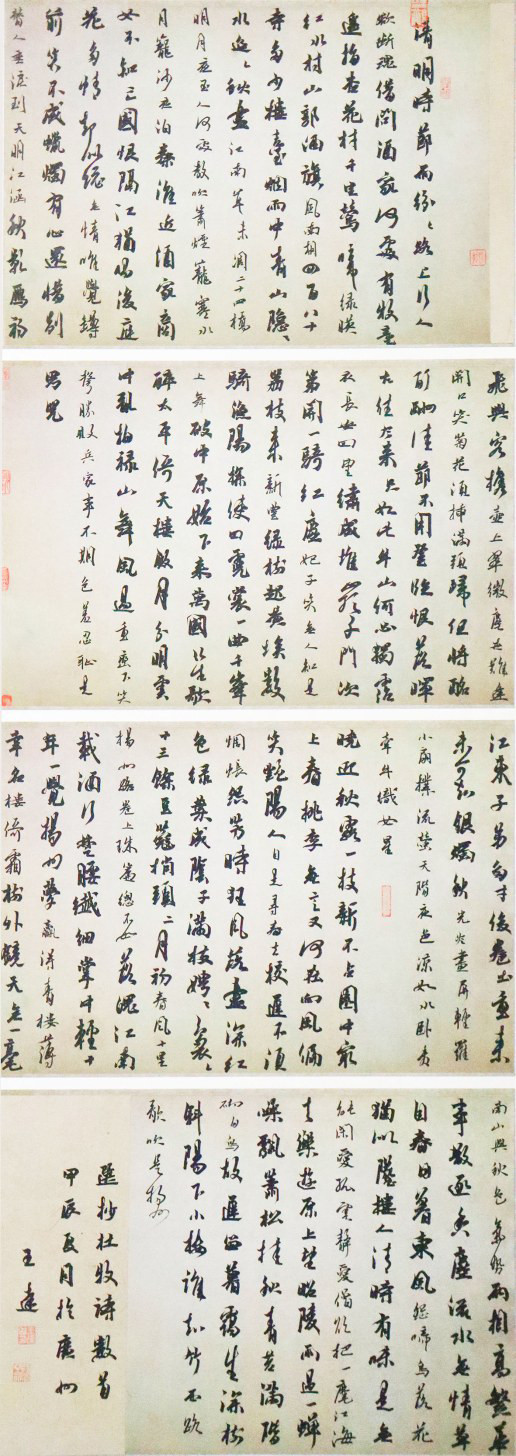 清明時節雨紛々路上行人
欲斷魂借問酒家何處有牧童
遙指杏花村千里鶯啼綠映
紅水村山郭酒旗風南朝四百八十
寺多少樓臺煙雨中青山隱々
水迢々秋盡江南草未凋二十四橋
明月夜玉人何處教吹簫煙籠寒水
月籠沙夜泊秦淮近酒家商
女不知亡國恨隔江猶唱後庭
花多情卻似總無情唯覺罇
前笑不成蠟燭有心還惜別
替人垂淚到天明江涵秋影雁初
飛與客攜壺上翠微塵世難逢
開口笑菊花須插滿頭歸但將酩
酊酬佳節不用登臨恨落暉
古往今來只如此牛山何必獨霑
衣長安回望繡成堆山頂千門次
第開一騎紅塵妃子笑無人知是
荔枝來新豐綠樹起黃埃數
騎漁陽探使回霓裳一曲千峯
上舞破中原始下來萬國笙歌
醉太平倚天樓殿月分明雲
中亂拍祿山舞風過重巒下笑
聲勝敗兵家事不期包羞忍恥是
男兒
江東子弟多才俊卷土重來
未可知銀燭秋光冷畫屏輕羅
小扇撲流螢天階夜色涼如水卧看
牽牛織女星
曉迎秋露一枝新不占園中最
上春桃李無言又何在向風偏
笑艷陽人自是尋春去校遲不須
惆悵怨芳時狂風落盡深紅
色綠葉成陰子滿枝娉々裊々
十三餘豆蔻梢頭二月初春風十里
揚州路卷上珠簾總不如落魄江南
載酒行楚腰纖細掌中輕十
年一覺揚州夢贏得青樓薄
幸名樓倚霜樹外鏡天無一毫
南山與秋色氣勢兩相高繁華
事散逐香塵流水無情草
自春日暮東風怨啼鳥落花
猶似墜樓人清時有味是無
能閑愛孤雲靜愛僧欲把一麾江海
去樂遊原上望昭陵雨過一蟬
噪飄蕭松桂秋青苔滿階
砌白鳥故遲留暮靄生深樹
斜陽下小樓誰知竹西路
歌吹是揚州
選抄杜牧詩數首
甲辰夏月於廣州
王